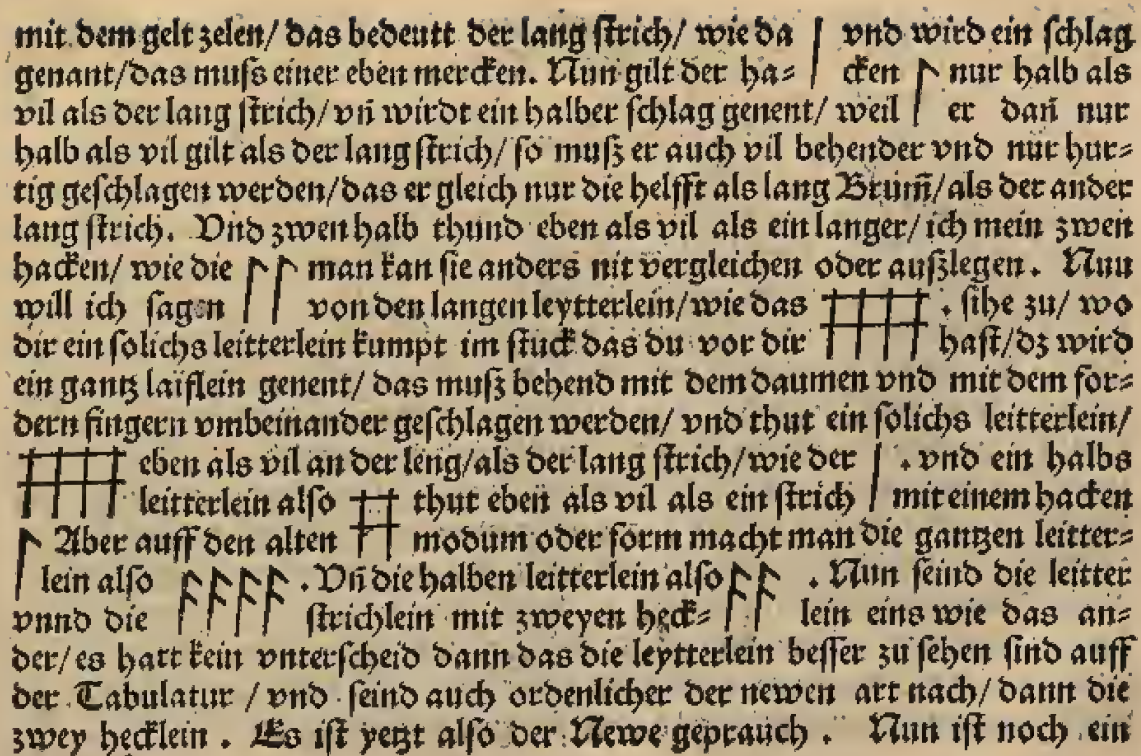 mit dem gelt zelen/ das bedeutt der lang ſtrich/ wie da | vnd wird ein ſchlag
genant/das muſs einer eben mercken. Nun gilt der ha⸗ cken nur halb als
vil als der lang ſtrich/ vn̄ wirdt ein halber ſchlag genent/ weil er dan̄ nur
halb als vil gilt als der lang ſtrich/ ſo muſz er auch vil behender vnd nur hur⸗
tig geſchlagen werden/das er gleich nur die helfft als lang Brum̄/als der ander
lang ſtrich. Vnd zwen halb thund eben als vil als ein langer/ ich mein zwen
hacken/ wie die man kan ſie anders nit vergleichen oder auſzlegen. Nun
will ich ſagen von den langen leytterlein/wie das . ſihe zu/ wo
dir ein ſolichs leitterlein kumpt im ſtuck das du vor dir haſt/dz wird
ein gantz laiflein genent/ das muſz behend mit dem daumen vnd mit dem for⸗
dern fingern vmbeinander geſchlagen werden/ vnd thut ein ſolichs leitterlein/
eben als vil an der leng/als der lang ſtrich/wie der | . vnd ein halbs
leitterlein alſo thut eben als vil als ein ſtrich mit einem hacken
Aber auff den alten modum oder form macht man die gantzen leitter⸗
lein alſo . Vn̄ die halben leitterlein alſo . Nun ſeind die leitter
vnnd die ſtrichlein mit zweyen heck⸗ lein eins wie das an⸗
der/ es hatt kein vnterſcheid dann das die leytterlein beſſer zu ſehen ſind auff
der Tabulatur / vnd ſeind auch ordenlicher der newen art nach/ dann die
zwey hecklein . Es iſt yetzt alſo der Newe geprauch . Nun iſt noch ein